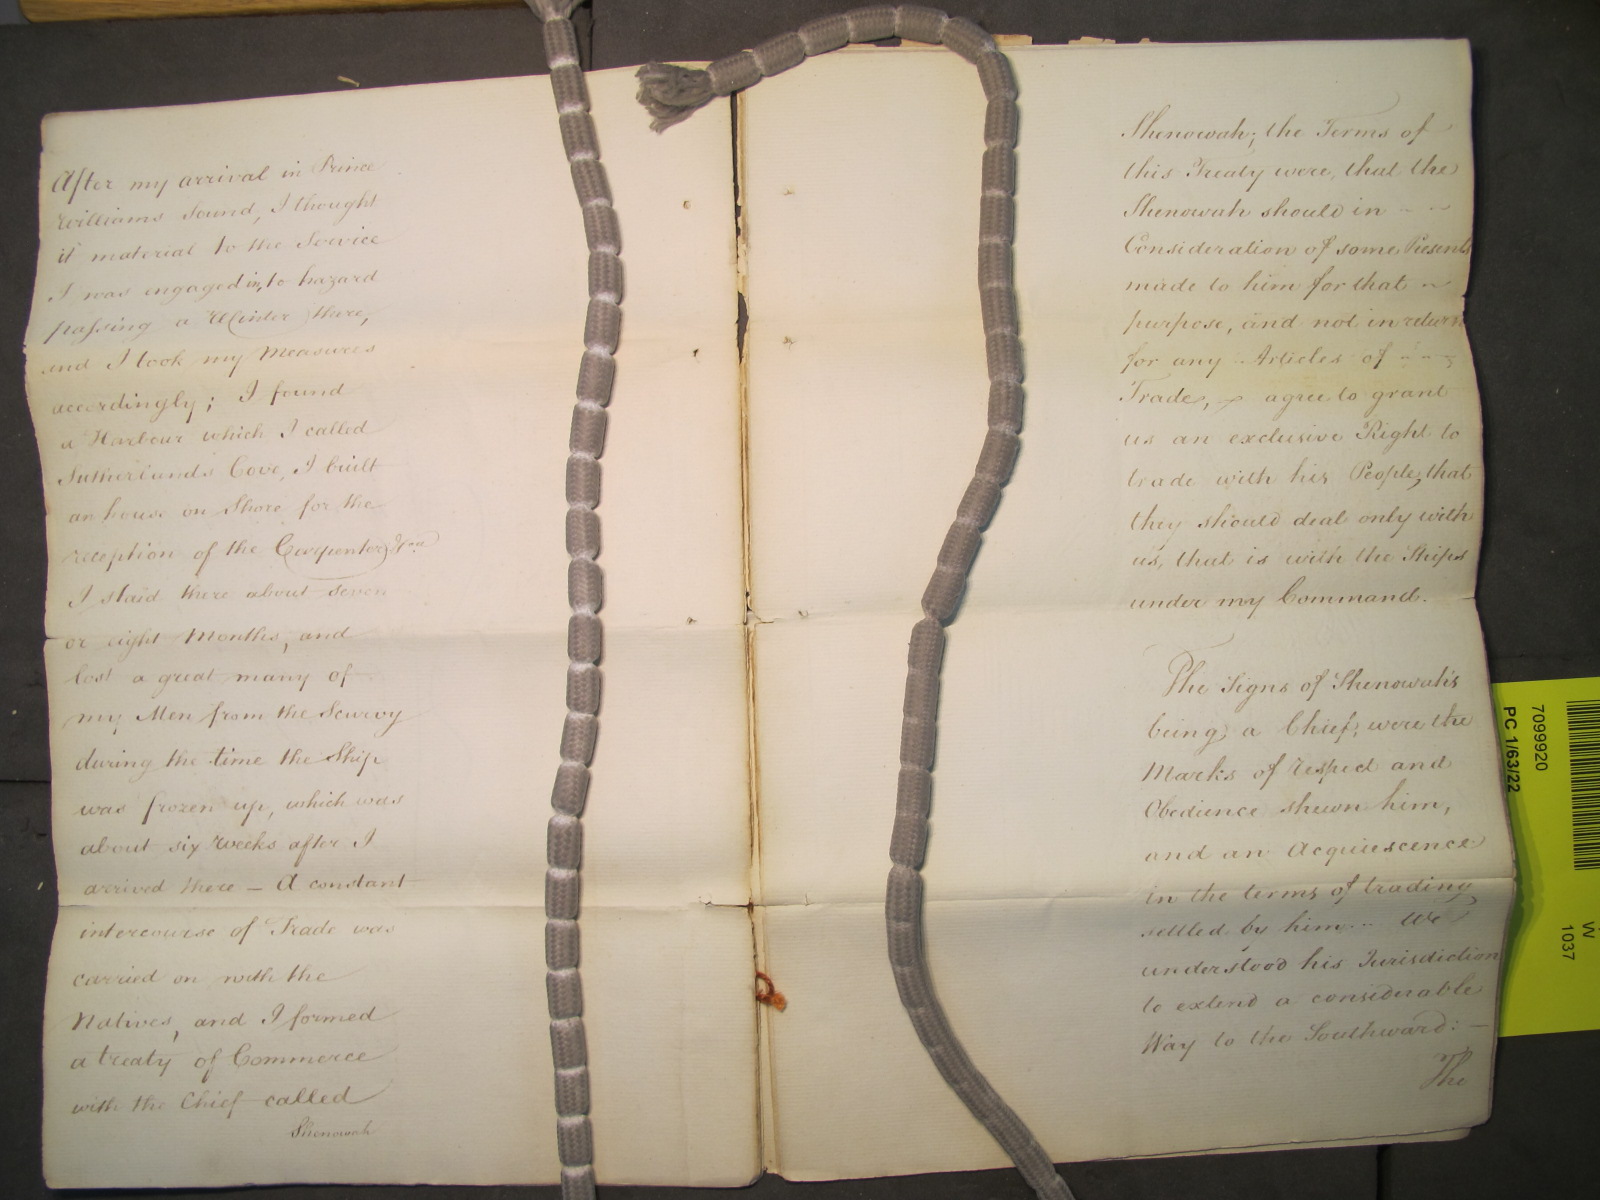 After my arrival in Prince
Williams Sound, I thought
it material to the Service
I was engaged in, to hazard
passing a Winter there,
and I took my Measures
accordingly; I found
a Harbour which I called
Sutherlands Cove, I built
an house on Shore for the
reception of the Carpenters &ca
I staid there about seven
or eight Months, and
lost a great many of
my Men from the Scurvy
during the time the Ship
was frozen up, which was
about six weeks after I
arrived there — A constant
intercourse of Trade was
carried on with the
Natives, and I formed
a treaty of Commerce
with the Chief called
Shenowah
Shenowah; the Terms of
this Treaty were, that the
Shenowah should in - -
Consideration of some Presents
made to him for that ~
purpose, and not in return
for any Articles of - - -
Trade, ~ agree to grant
us an exclusive Right to
trade with his People, that
they should deal only with
us, that is with the Ships
under my Command.
The Signs of Shenowah's
being a Chief, were the
Marks of respect and
Obedience shewn him,
and an Acquiescence
in the terms of trading
settled by him... We
understood his Jurisdiction
to extend a considerable
Way to the Southward: —
The
7099920
PC 1/63/22
W
1037